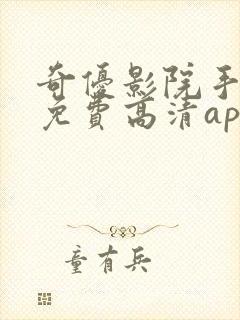 奇優影院手
免費高清ap
童有兵